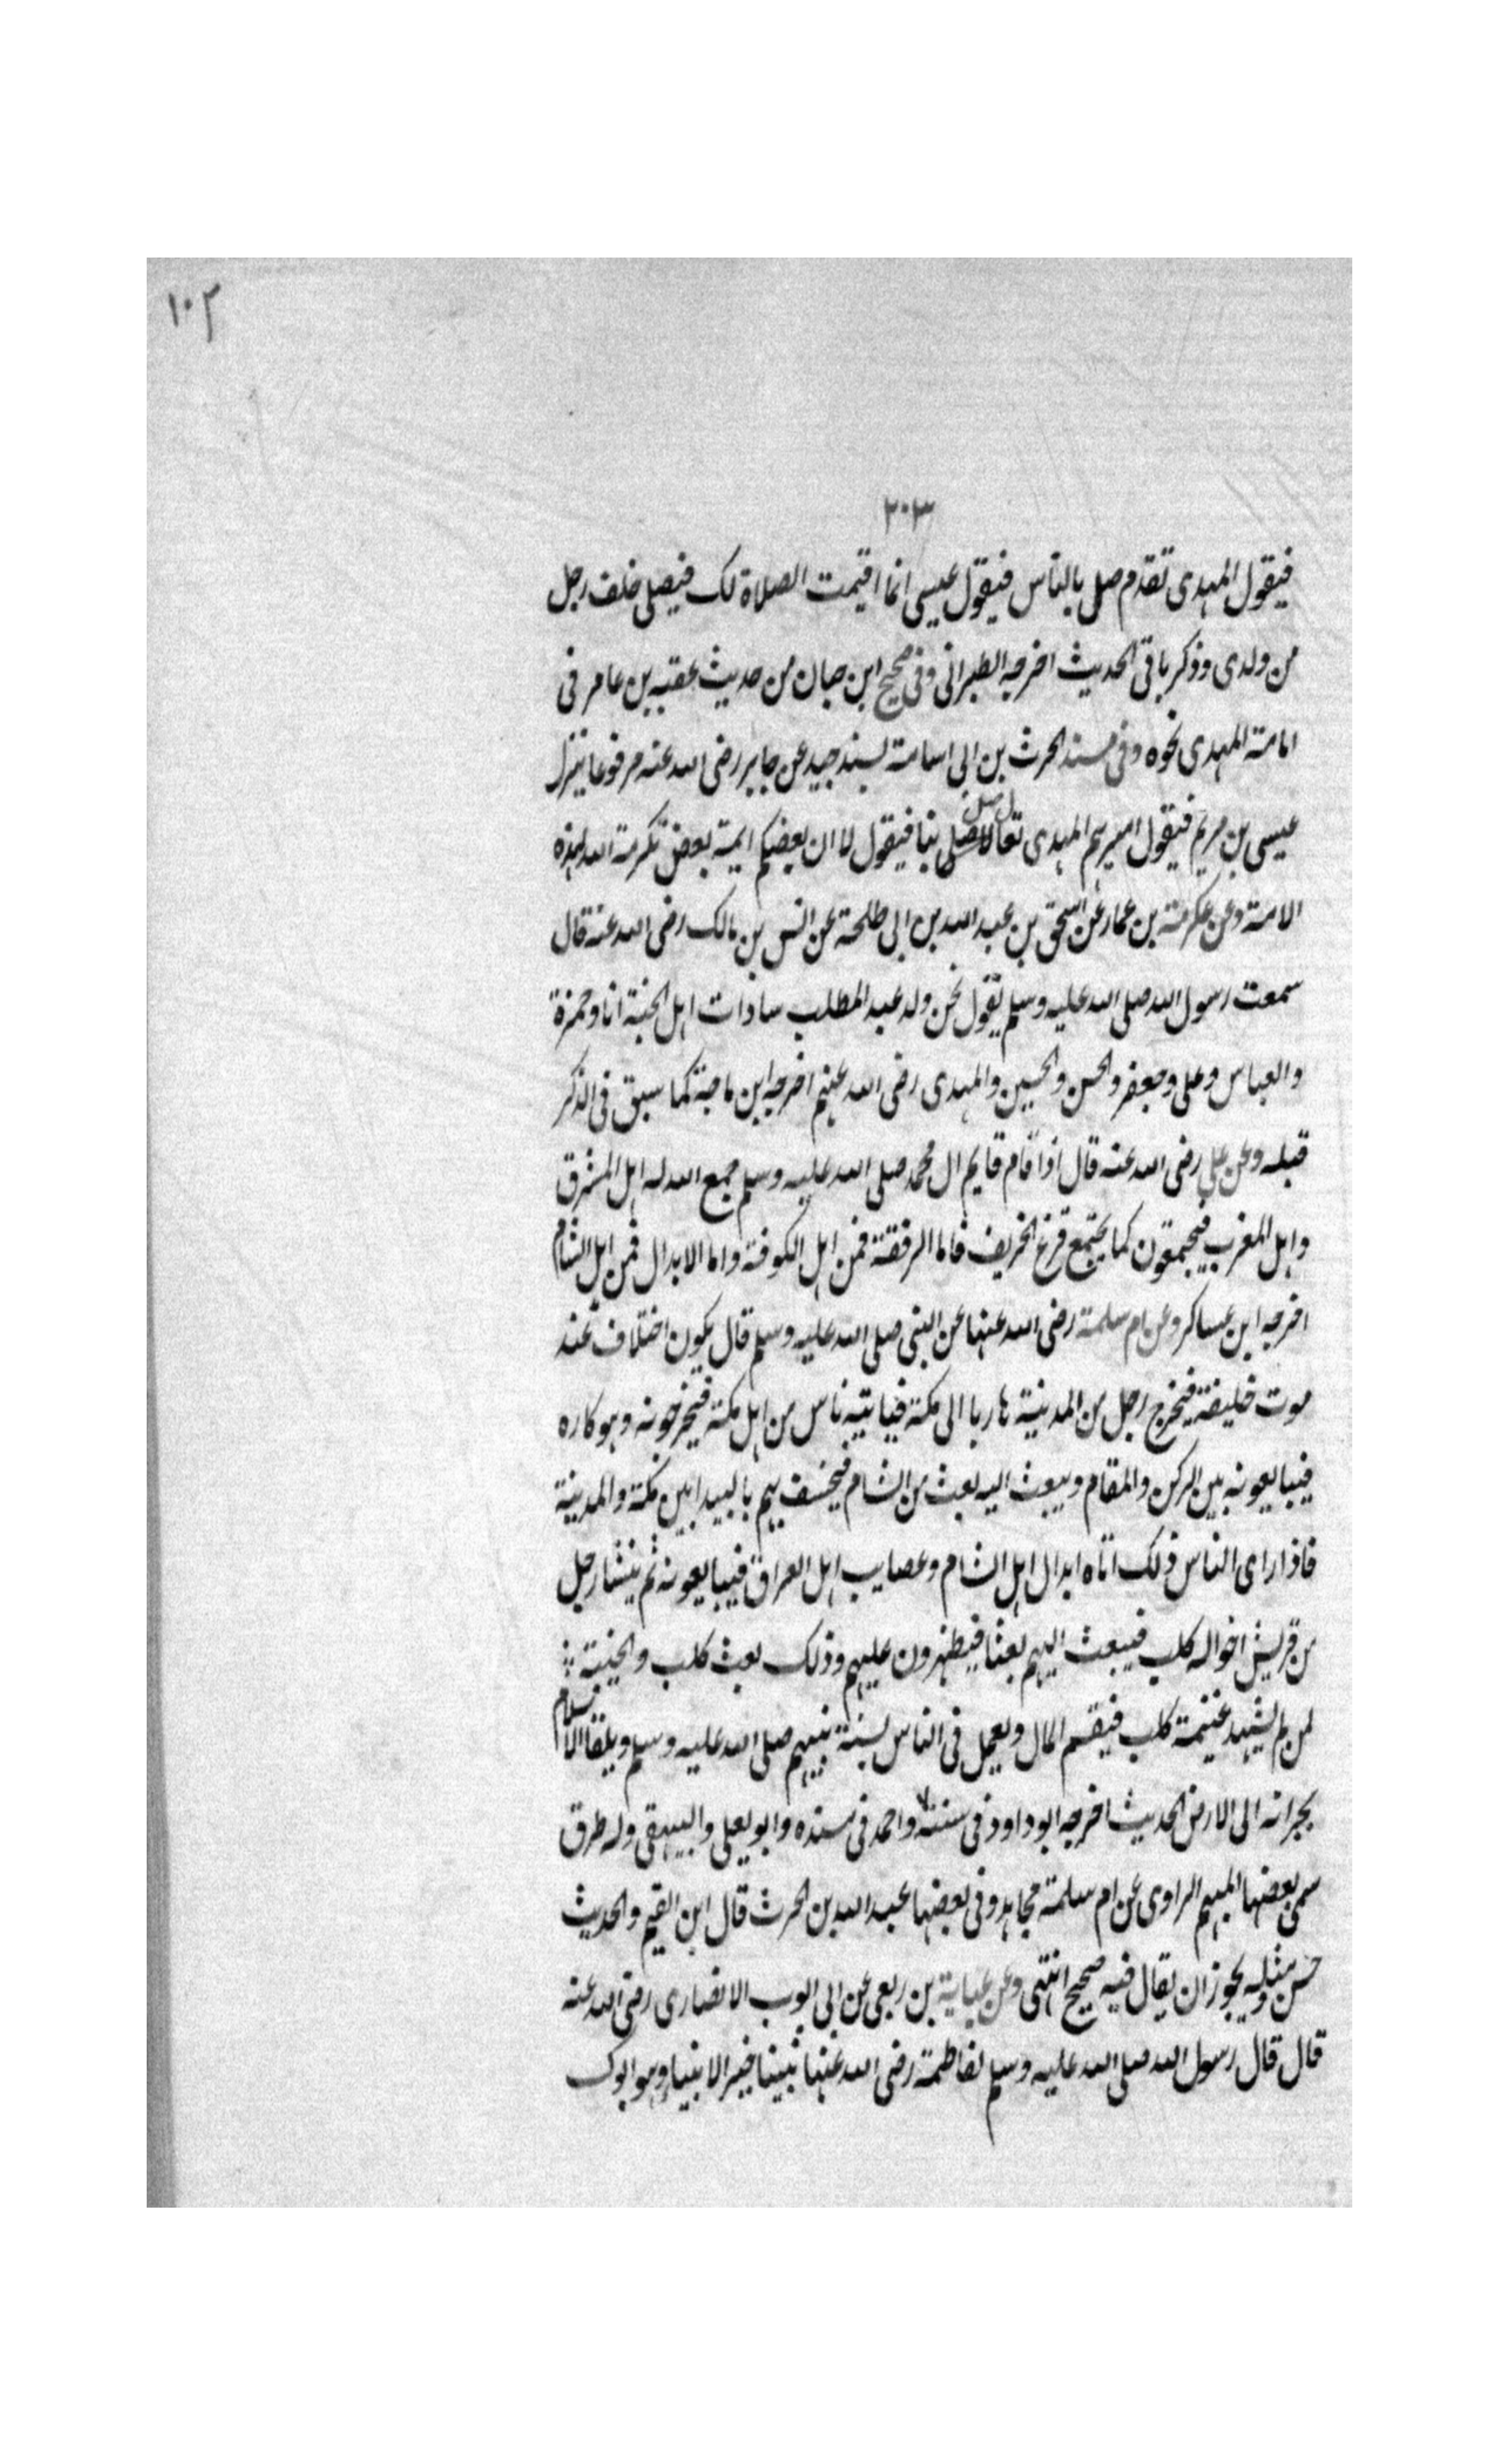 ١٠٢
٣٠٣
فيقول المهدى تقدم صل بالناس فيقول عيسى انما اقيمت الصلاة لك فيصلى خلف رجل
من ولدى وذكر باقى الحديث اخرجه الطبرانى وفى صحيح ابن حبان من حديث عقبه بن عامر فى
امامة المهدى نحوه وفى مسند الحرث بن ابى اسامة بسند جيد عن جابر رضى الله عنه مرفوعا ينزل
عيسى بن مريم فيقول اميرهم المهدى تعال صل بنا فيقول لا ان بعضكم ايمة بعض تكرمة الله لهذه
الامة وعن عكرمة بن عمار عن اسحق بن عبد الله بن ابى طلحة عن انس بن مالك رضى الله عنه قال
سمعت رسول الله صلى الله عليه وسلم يقول نحن ولد عبد المطلب سادات اهل الجنة انا وحمزة
والعباس وعلى وجعفر والحسن والحسين والمهدى رضى الله عنهم اخرجه ابن ماجة كما سبق فى الذكر
قبله وعن على رضى الله عنه قال اذا قام قايم ال محمد صلى الله عليه وسلم جمع الله له اهل المشرق
واهل المغرب فيجمعون كما يجتمع قزع الخريف فاما الرفقة فمن اهل الكوفة واما الابدال فمن اهل الشام
اخرجه ابن عساكر وعن ام سلمة رضى الله عنها عن النبى صلى الله عليه وسلم قال يكون اختلاف عند
موت خليفة فيخرج رجل من المدينة هاربا الى مكة فياتيه ناس من اهل مكة فيخرجونه وهو كاره
فيبايعونه بين الركن والمقام ويبعث اليه بعث من الشام فيخسف بهم بالبيدا بين مكة والمدينة
فاذا راى الناس ذلك اتاه ابدال اهل الشام وعصايب اهل العراق فيبايعونه ثم ينشا رجل
من قريش اخواله كلب فيبعث اليهم بعثا فيظهرون عليهم وذلك بعث كلب والخيبة
لمن لم يشهد غنيمة كلب فيقسم المال ويعمل فى الناس بسنة نبيهم صلى الله عليه وسلم ويلقا الاسلام
بجرانه الى الارض الحديث اخرجه ابو داود فى سننه واحمد فى مسنده وابو يعلى والبيهقى وله طرق
سمى بعضها المبهم الراوى عن ام سلمة مجاهد وفى بعضها عبد الله بن الحرث قال ابن القيم والحديث
حسن ومثله يجوز ان يقال فيه صحيح انتهى وعن عباية بن ربعى عن ابى ايوب الانصارى رضى الله عنه
قال قال رسول الله صلى الله عليه وسلم لفاطمة رضى الله عنها نبينا خير الانبياء وهو ابوك